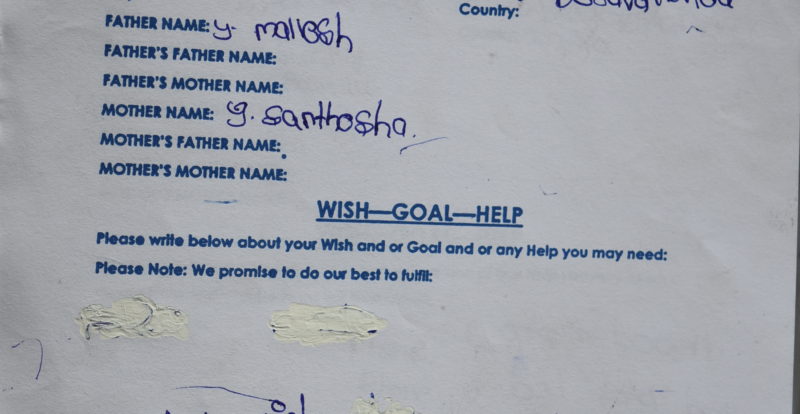 Country:
FATHER NAME: y. mallesh
FATHER'S FATHER NAME:
FATHER'S MOTHER NAME:
MOTHER NAME: y. santhosha.
MOTHER'S FATHER NAME:
MOTHER'S MOTHER NAME:
WISH—GOAL—HELP
Please write below about your Wish and or Goal and or any Help you may need:
Please Note: We promise to do our best to fulfil: